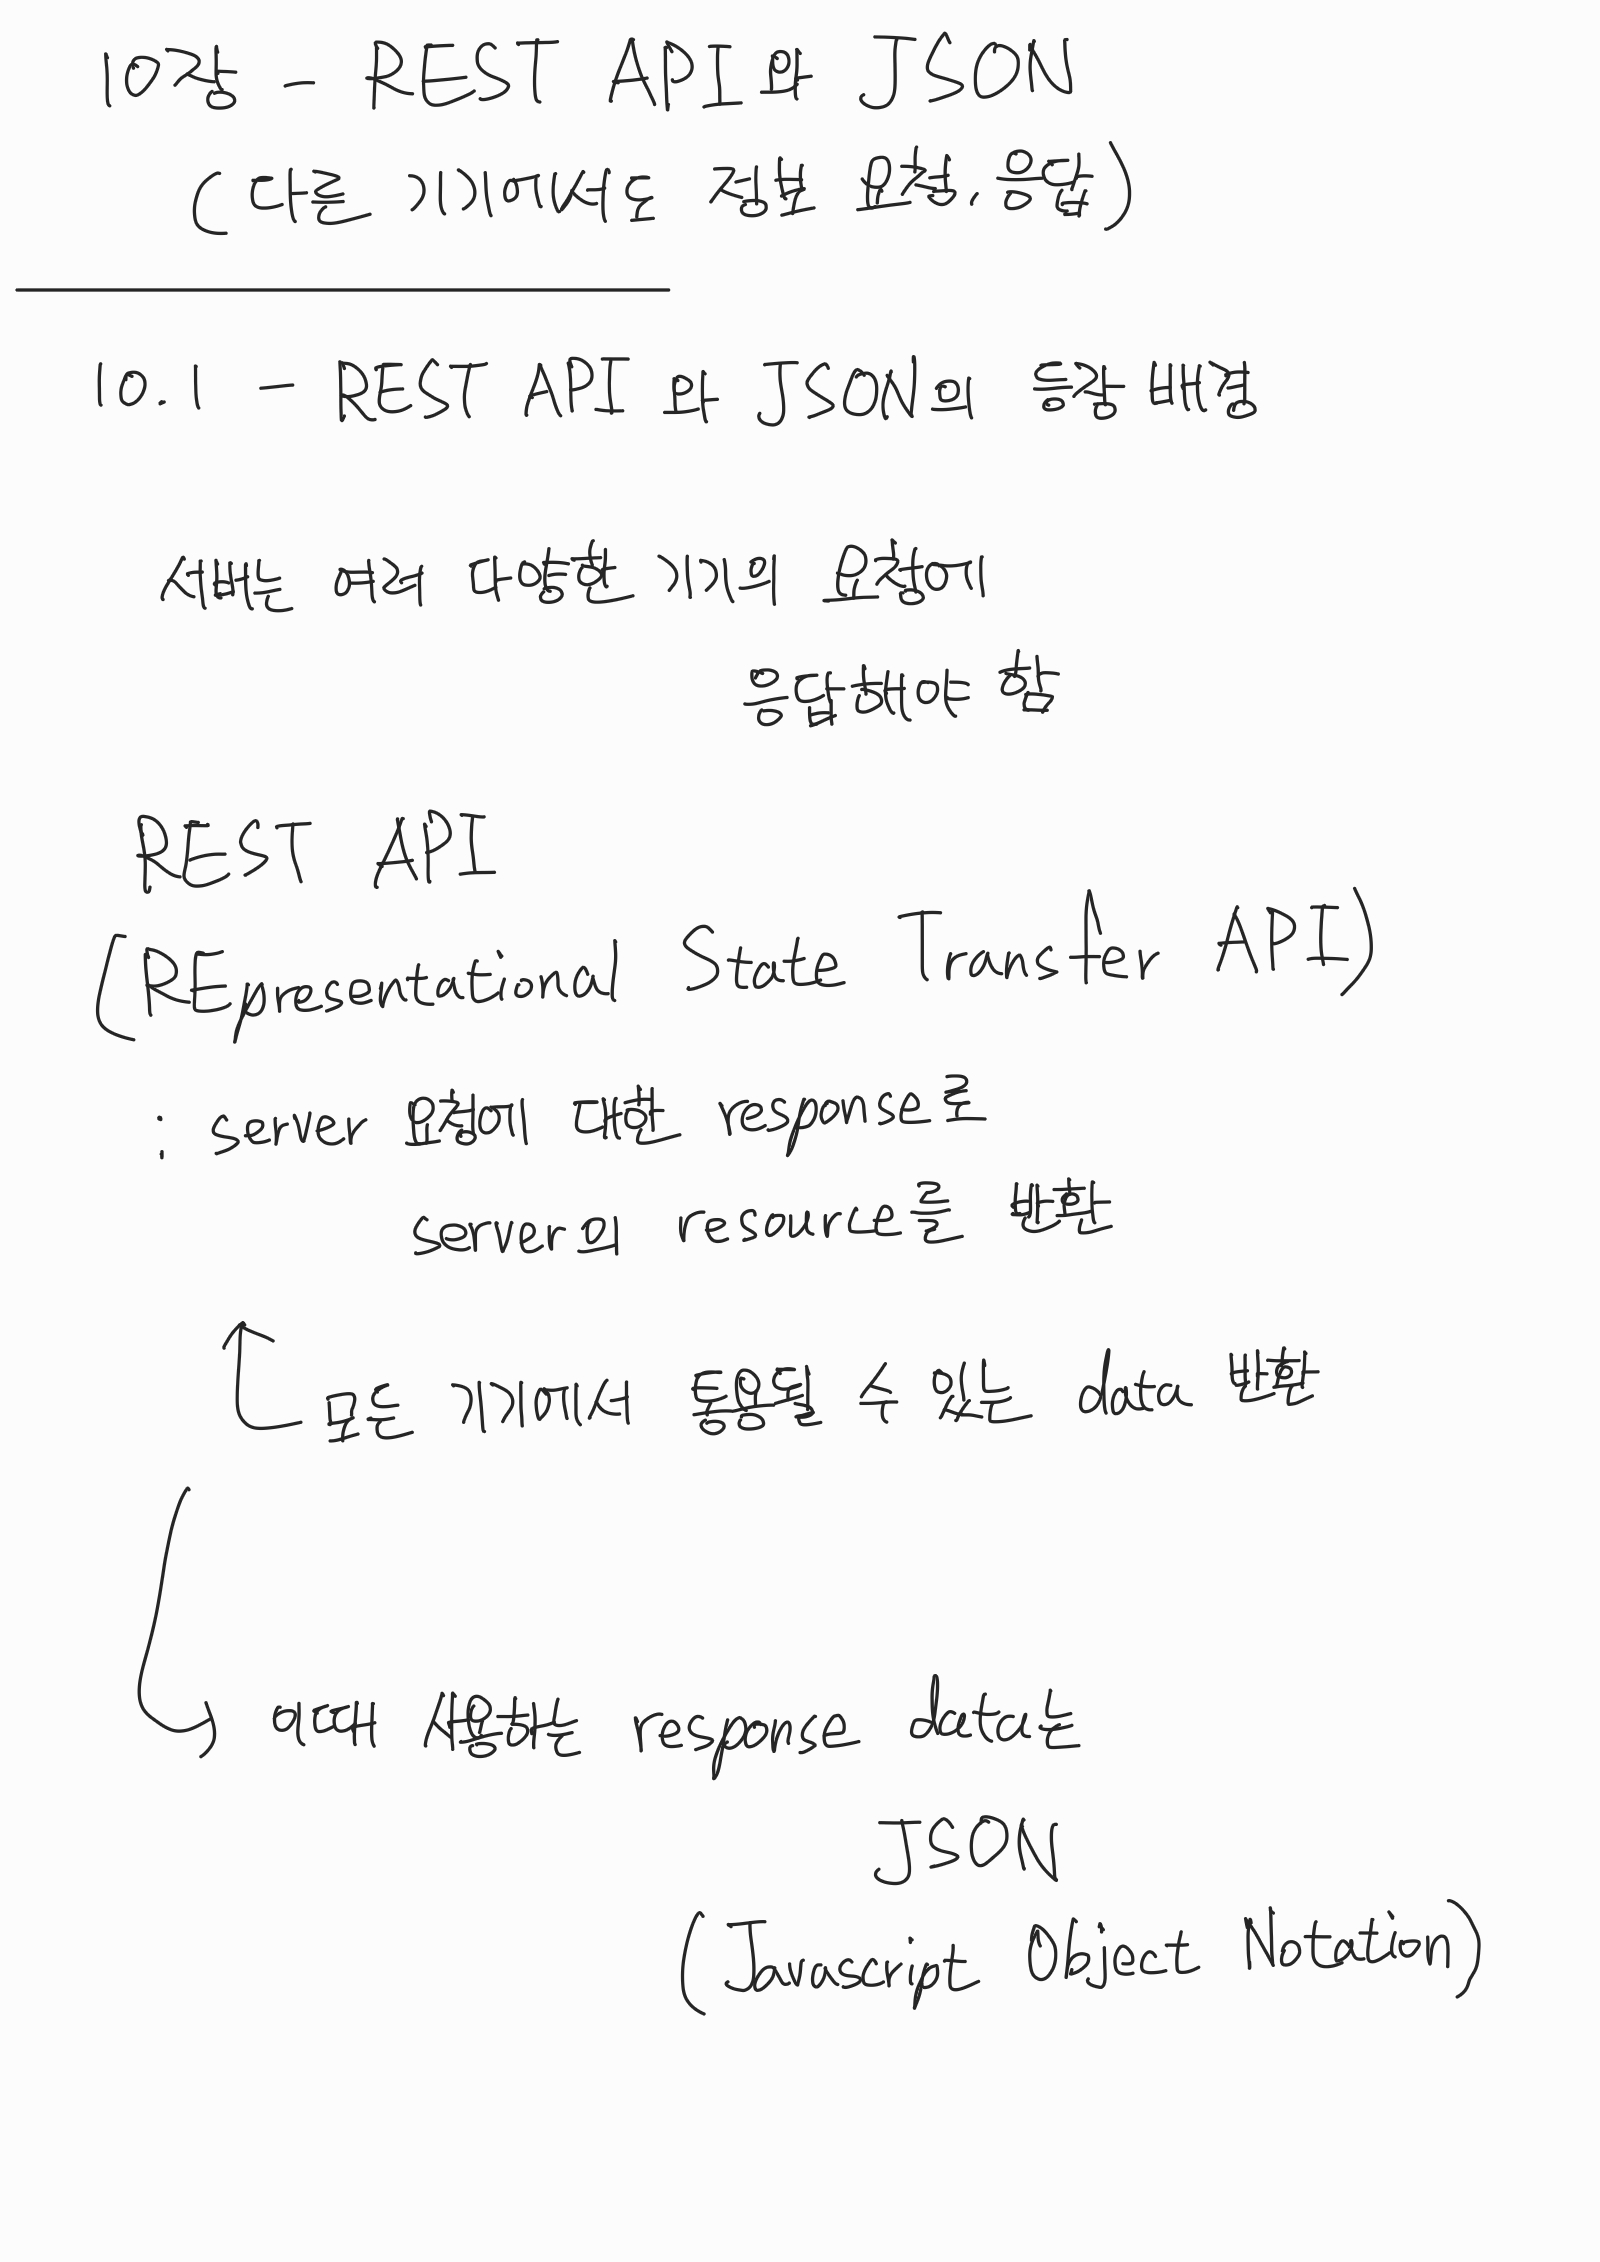 10강 - REST API와 JSON
(다른 기기에서도 정보 요청, 응답)
10.1 - REST API와 JSON의 등장 배경
서버는 여러 다양한 기기의 요청에
응답해야 함
REST API
(REpresentational State Transfer API)
: server 요청에 대한 response로
server의 resource를 반환
모든 기기에서 통용될 수 있는 data 반환
이때 사용하는 response data는
JSON
(Javascript Object Notation)